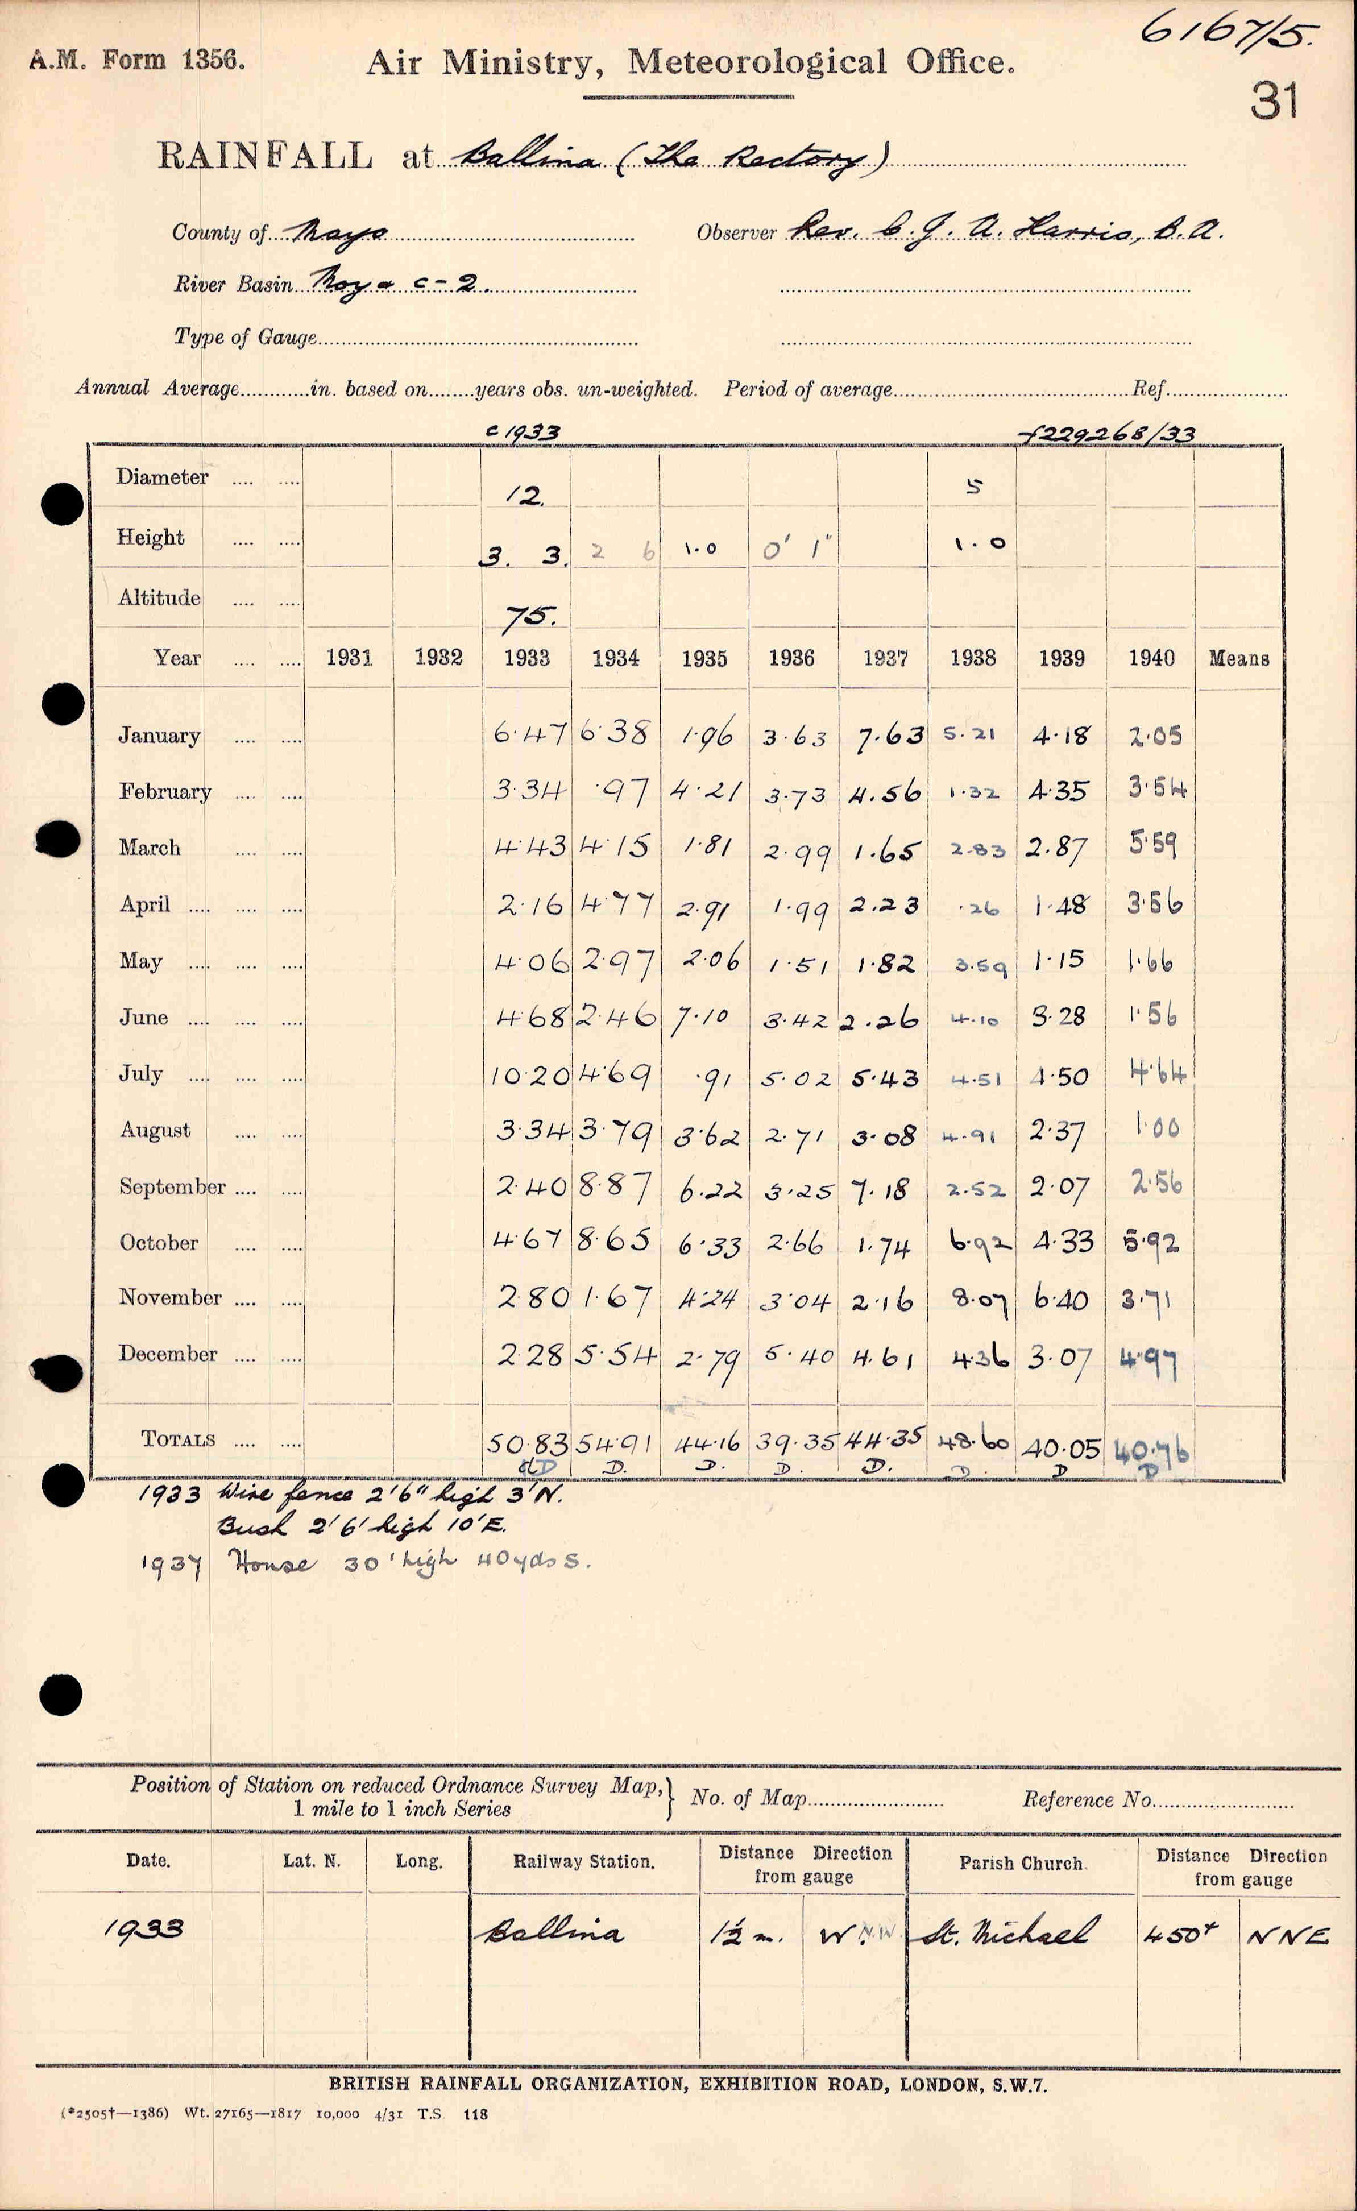 6167/5.
A.M. Form 1356. Air Ministry, Meteorological Office.
31
RAINFALL at Ballina (The Rectory)
County of Mayo Observer Rev. C. J. A. Harris, B.A.
River Basin Moy a c-2.
Type of Gauge
Annual Average in. based on years obs. un-weighted. Period of average Ref.
c 1933 f229268/33
Diameter 12. 5
Height 3. 3. 2 6 1.0 0' 1" 1.0
Altitude 75.
Year 1931 1932 1933 1934 1935 1936 1937 1938 1939 1940 Means
January 6.47 6.38 1.96 3.63 7.63 5.21 4.18 2.05
February 3.34 .97 4.21 3.73 4.56 1.32 4.35 3.54
March 4.43 4.15 1.81 2.99 1.65 2.83 2.87 5.59
April 2.16 4.77 2.91 1.99 2.23 .26 1.48 3.56
May 4.06 2.97 2.06 1.51 1.82 3.59 1.15 1.66
June 4.68 2.46 7.10 3.42 2.26 4.10 3.28 1.56
July 10.20 4.69 .91 5.02 5.43 4.51 4.50 4.64
August 3.34 3.79 3.62 2.71 3.08 4.91 2.37 1.00
September 2.40 8.87 6.22 3.25 7.18 2.52 2.07 2.56
October 4.67 8.65 6.33 2.66 1.74 6.92 4.33 5.92
November 2.80 1.67 4.24 3.04 2.16 8.07 6.40 3.71
December 2.28 5.54 2.79 5.40 4.61 4.36 3.07 4.97
TOTALS 50.83 54.91 44.16 39.35 44.35 48.60 40.05 40.76
D D. D. D. D. D. D D
1933 Wire fence 2'6" high 3'N.
Bush 2'6' high 10'E.
1937 House 30' high 40yds S.
Position of Station on reduced Ordnance Survey Map, 1 mile to 1 inch Series } No. of Map Reference No.
Date. Lat. N. Long. Railway Station. Distance Direction from gauge Parish Church. Distance Direction from gauge
1933 Ballina 1½ m. W N.W St. Michael 450+ NNE
BRITISH RAINFALL ORGANIZATION, EXHIBITION ROAD, LONDON, S.W.7.
(*2505†—1386) Wt. 27165—1817 10,000 4/31 T.S. 118